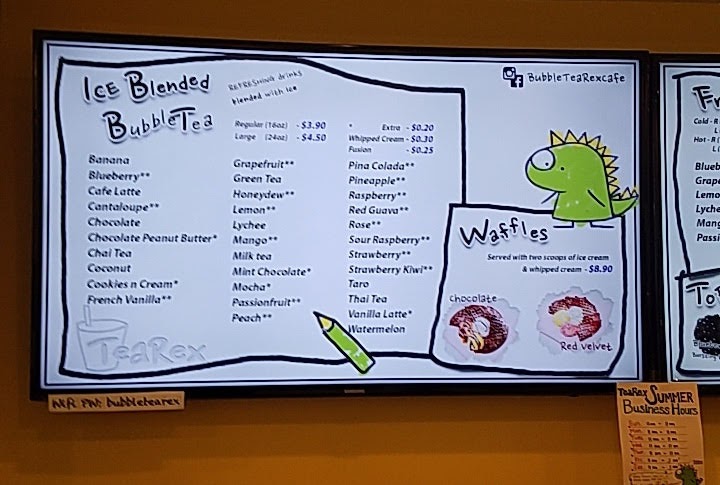 Ice Blended
BubbleTea
REFRESHING drinks
blended with ice
BubbleTeaRexcafe
Regular (16oz) - $3.90
Large (24oz) - $4.50
* Extra - $0.20
Whipped Cream - $0.30
Fusion - $0.25
Banana
Blueberry**
Cafe Latte
Cantaloupe**
Chocolate
Chocolate Peanut Butter*
Chai Tea
Coconut
Cookies n Cream*
French Vanilla**
Grapefruit**
Green Tea
Honeydew**
Lemon**
Lychee
Mango**
Milk tea
Mint Chocolate*
Mocha*
Passionfruit**
Peach**
Pina Colada**
Pineapple**
Raspberry**
Red Guava**
Rose**
Sour Raspberry**
Strawberry**
Strawberry Kiwi**
Taro
Thai Tea
Vanilla Latte*
Watermelon
TeaRex
Waffles
Served with two scoops of ice cream
& whipped cream - $8.90
Chocolate
Red Velvet
Fr
Cold - R
L (
Hot - R (
L
Blueb
Grape
Lemo
Lyche
Mang
Passi
To
Bluebe
Bursting
Wifi PW: bubbletearex
TeaRex SUMMER
Business Hours